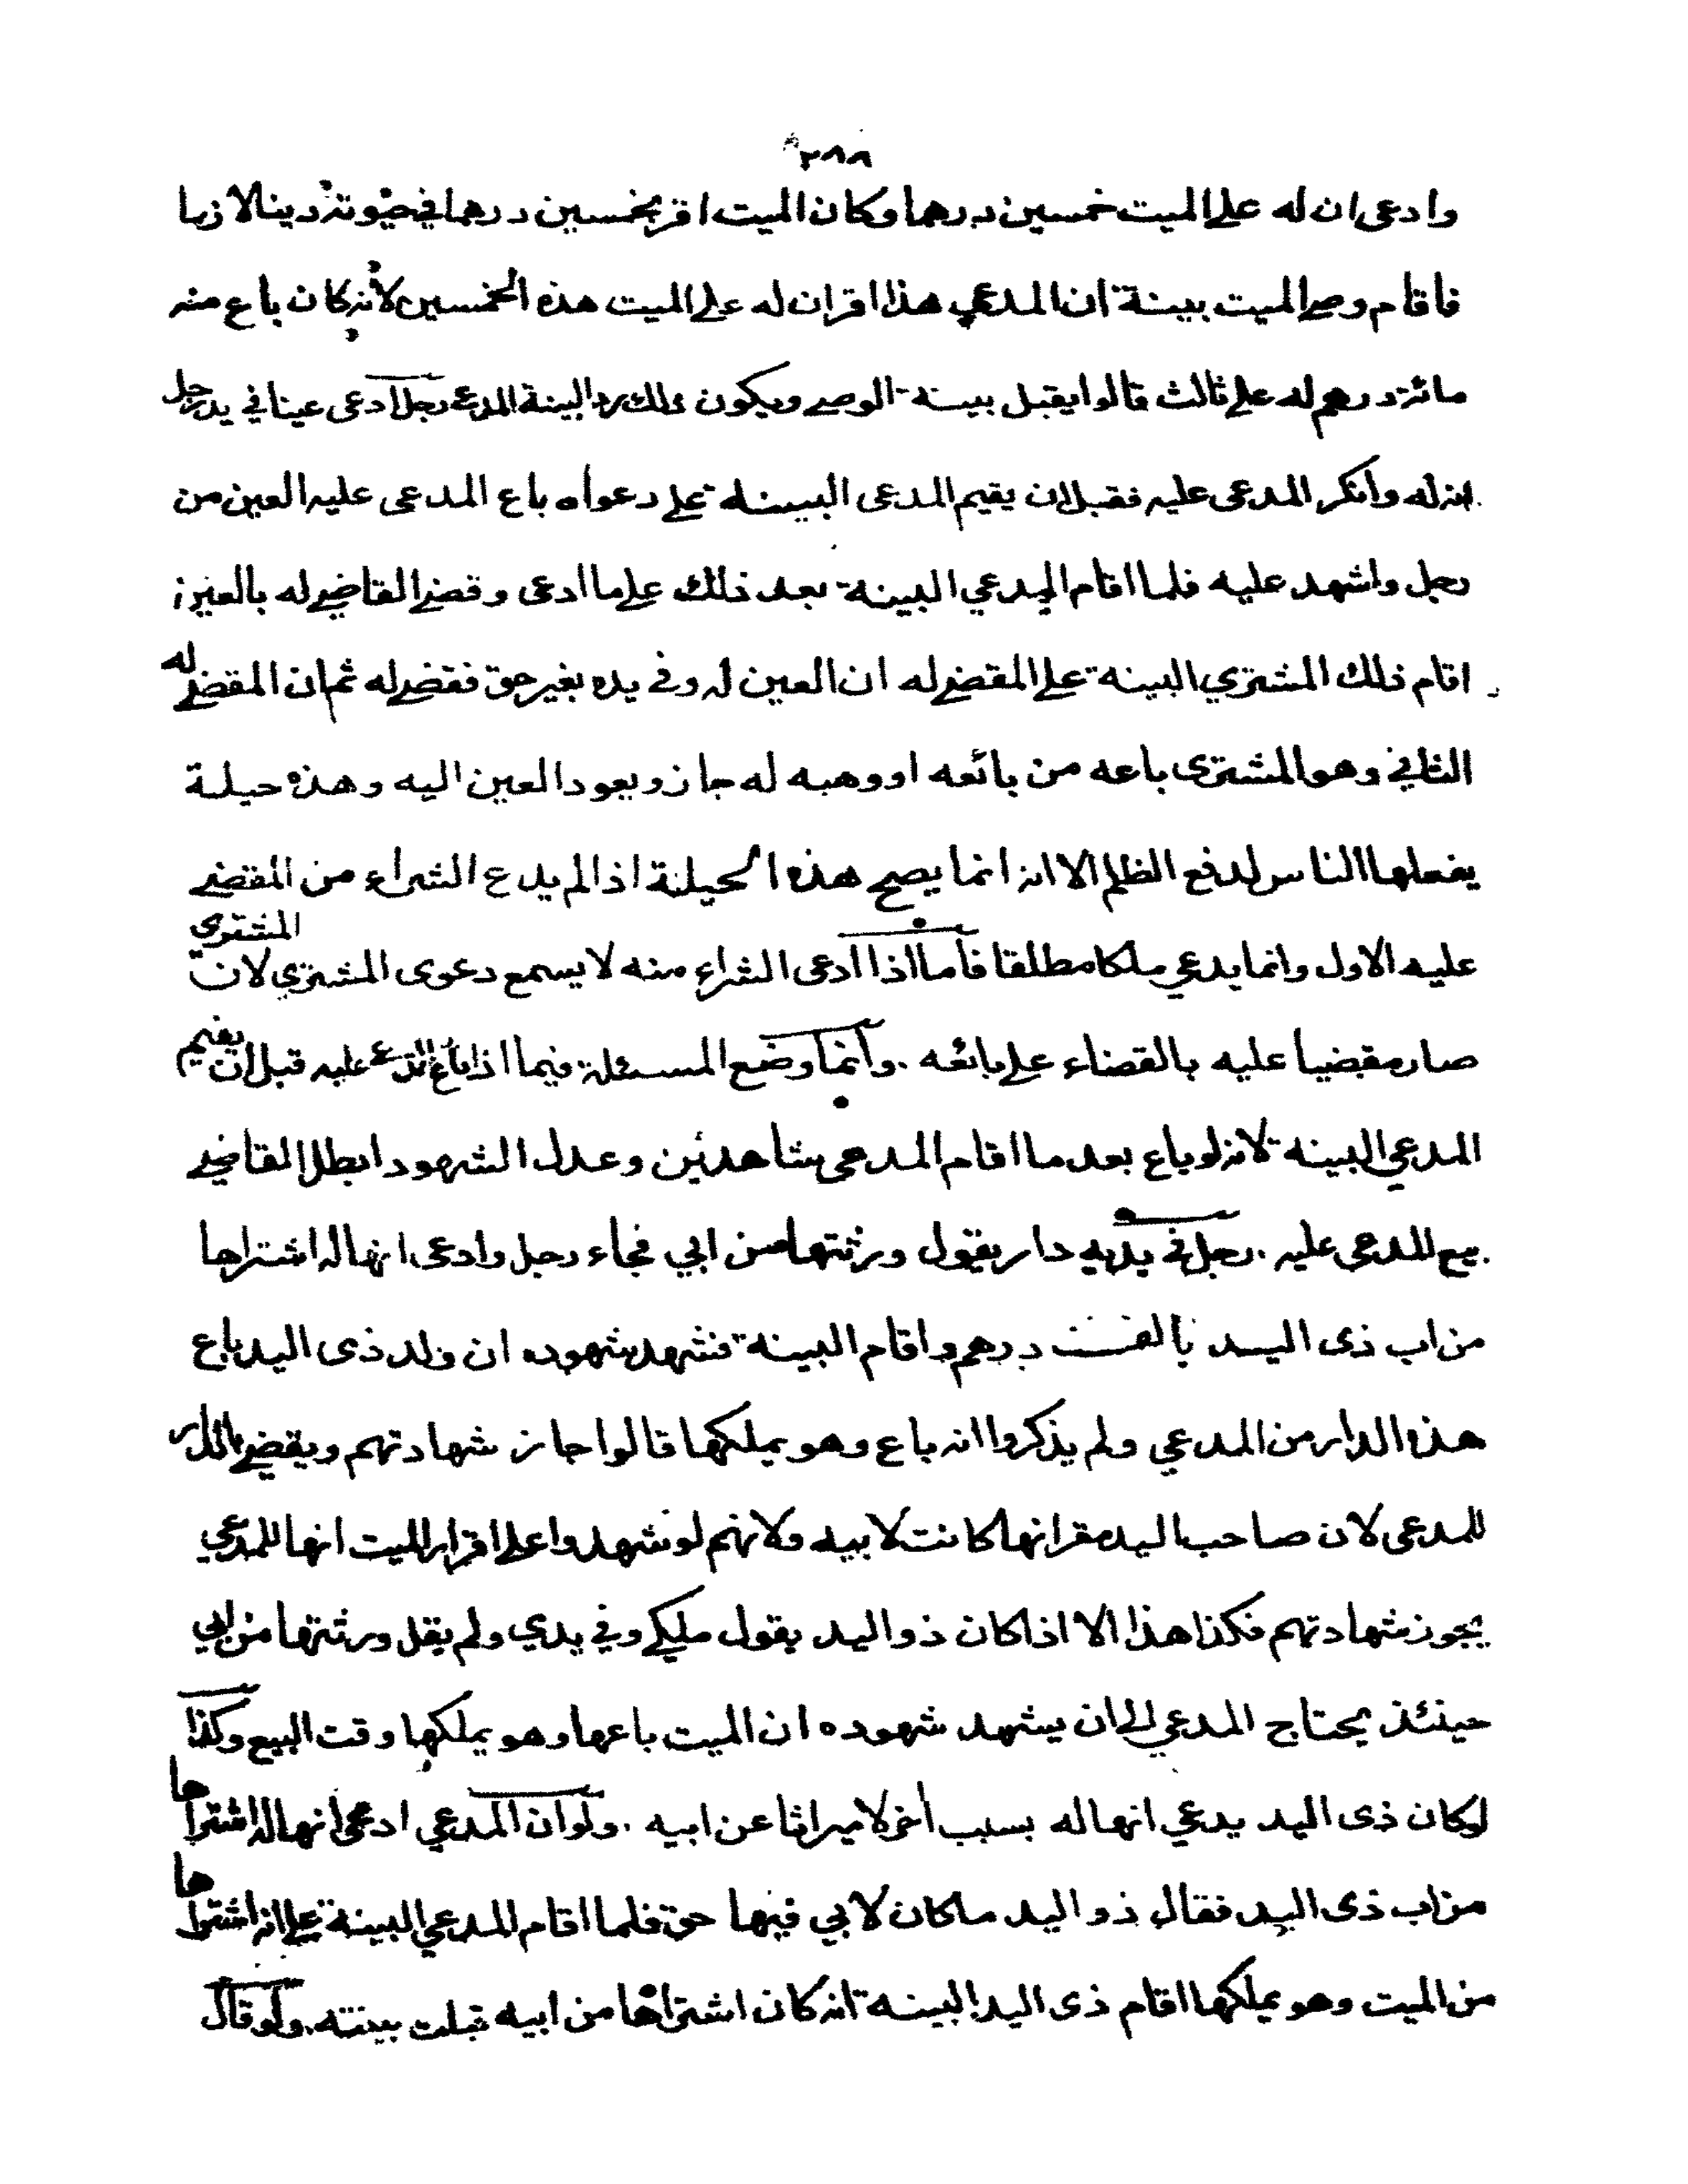 ٢٨٨
وادعى ان له على الميت خمسين درهما وكان الميت اقر بخمسين درهما في حيوته دينا لازما
فاقام وصي الميت بينة ان المدعي هذا اقر ان له على الميت هذه الخمسين لأنه كان باع منه
مائة درهم له على ثالث قالوا يقبل بينة الوصي ويكون ذلك رد البينة المدعي رجل ادعى عينا في يد رجل
انه له وانكر المدعى عليه فقبل ان يقيم المدعى البينة على دعواه باع المدعى عليه العين من
رجل واشهد عليه فلما اقام المدعي البينة بعد ذلك على ما ادعى وقضى القاضي له بالعين
اقام ذلك المشتري البينة على المقضي له ان العين له وفي يده بغير حق فقضى له ثم ان المقضي له
الثاني وهو المشترى باعه من بائعه او وهبه له جاز ويعود العين اليه وهذه حيلة
يفعلها الناس لدفع الظلم الا انه انما يصح هذه الحيلة اذا لم يدع الشراء من المقضي
عليه الاول وانما يدعي ملكا مطلقا فأما اذا ادعى الشراء منه لا يسمع دعوى المشتري لان المشتري
صار مقضيا عليه بالقضاء على بائعه . وانما وضع المسئلة فيما اذا باع المدعى عليه قبل ان يقيم
المدعي البينة لانه لو باع بعد ما اقام المدعى شاهدين وعدل الشهود ابطل القاضي
بيع المدعى عليه . رجل في يديه دار يقول ورثتها من ابي فجاء رجل وادعى انها له اشتراها
من اب ذى اليد بالف درهم واقام البينة فشهد شهوده ان ولد ذى اليد باع
هذه الدار من المدعي ولم يذكروا انه باع وهو يملكها قالوا جاز شهادتهم ويقضي بالدار
للمدعى لان صاحب اليد مقر انها كانت لابيه ولانهم لو شهدوا على اقرار الميت انها للمدعي
يجوز شهادتهم فكذا هذا الا اذا كان ذو اليد يقول ملكي وفي يدي ولم يقل ورثتها من ابي
حينئذ يحتاج المدعي الى ان يشهد شهوده ان الميت باعها وهو يملكها وقت البيع وكذا
لو كان ذى اليد يدعي انها له بسبب أخر لا ميراثا عن ابيه . ولو ان المدعي ادعى انها له اشتراها
من اب ذى اليد فقال ذو اليد ما كان لابي فيها حق فلما اقام المدعي البينة على انه اشتراها
من الميت وهو يملكها اقام ذى اليد البينة انه كان اشتراها من ابيه قبلت بينته . ولو قال